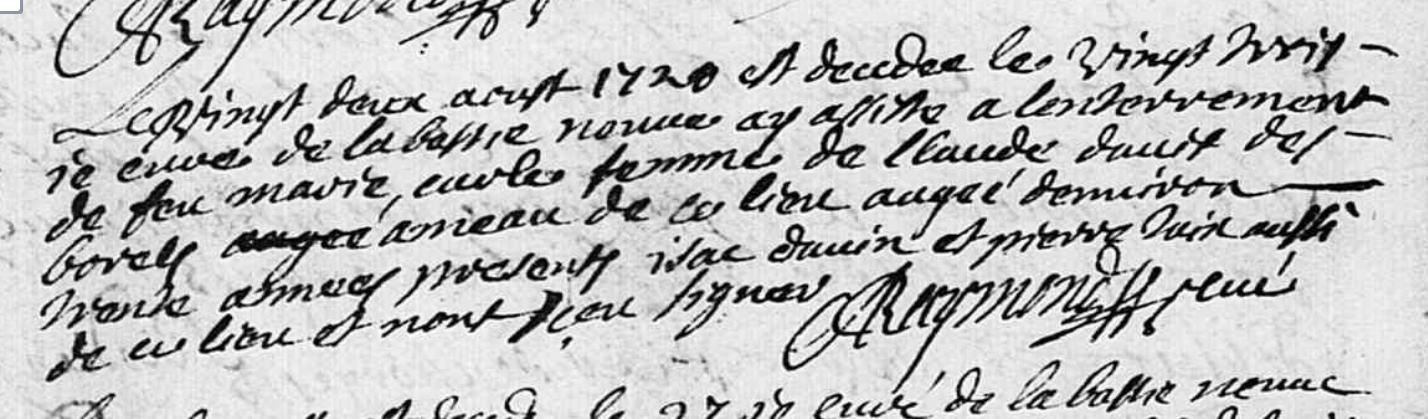 Raymond
Le Vingt deux aoust 1720 est decedee le Vingt trois
je curé de la bastie neuve ay assiste a lenterrement
de feu marie, femme de Claude davit des
borels ameau de ce lieu augeé denviron
trente annees presents isac davin et pierre aussi
de ce lieu et nont sceu signer Raymond curé
le 27 je curé de la bastie neuve